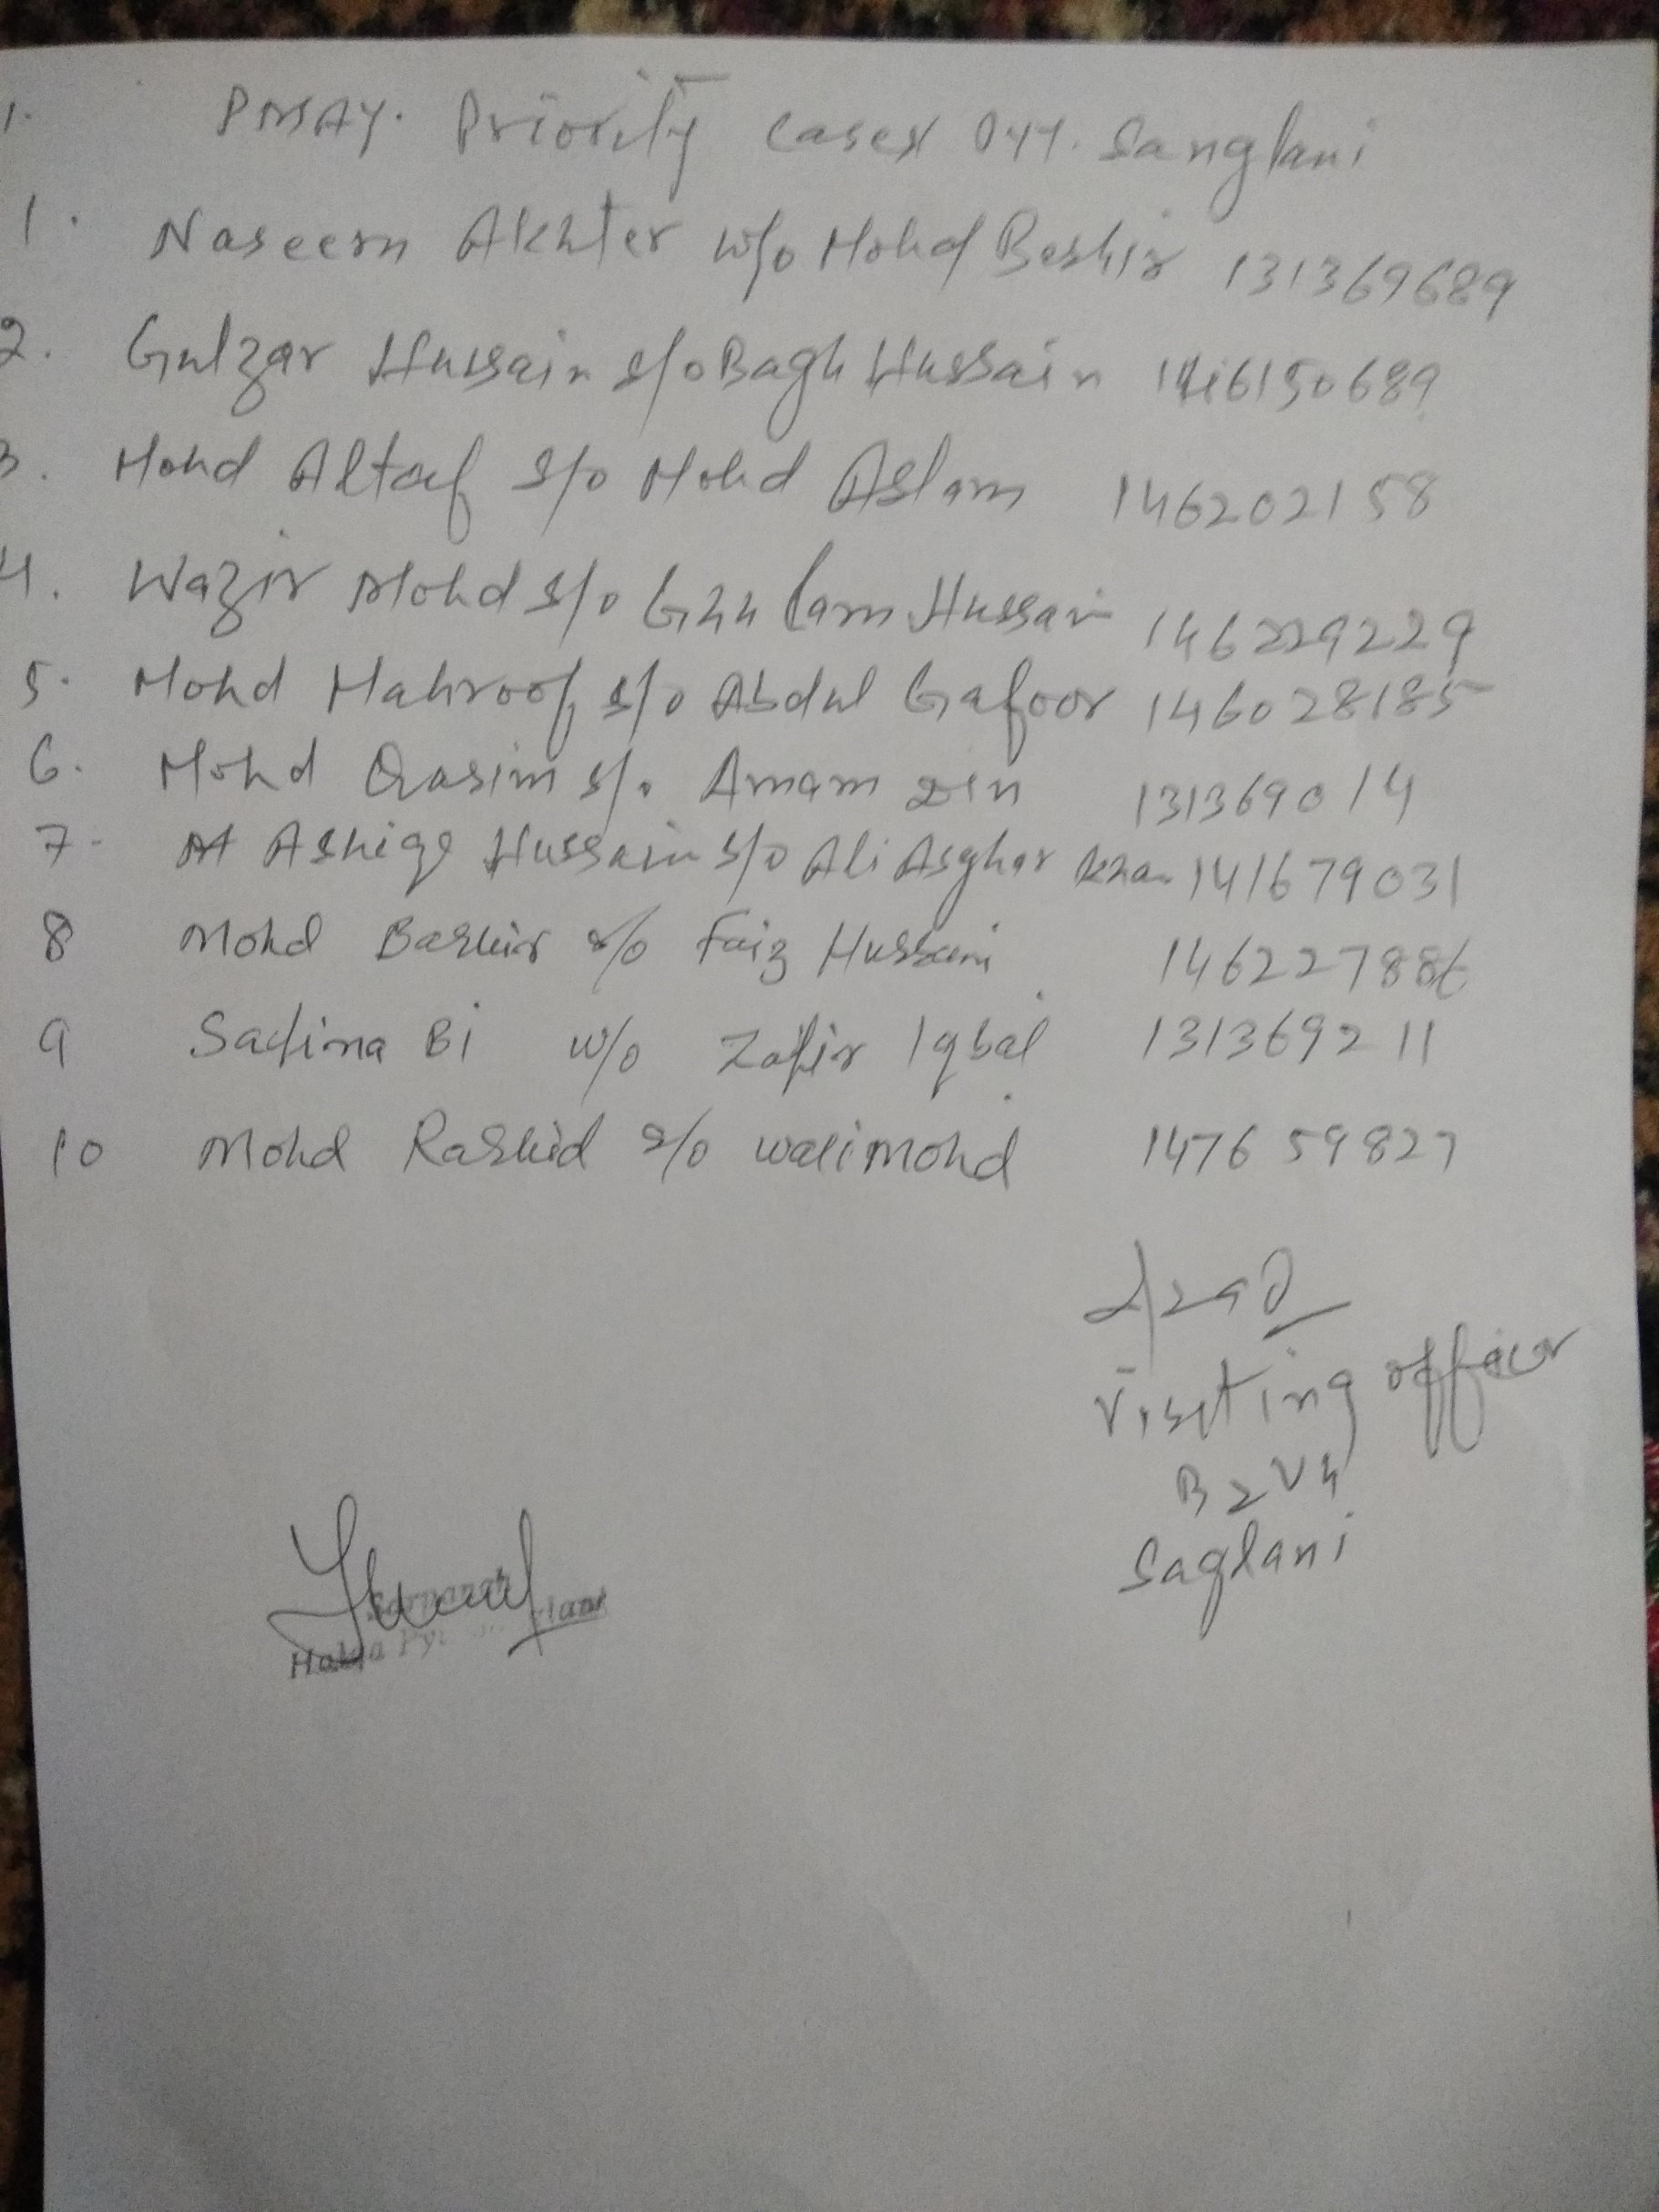 1. PMAY. Priority cases Pyt. Sanglani
1. Naseem Akhter w/o Mohd Beshir 131369689
2. Gulzar Hussain s/o Bagh Hussain 146150689
3. Mohd Altaf s/o Mohd Aslam 146202158
4. Wazir Mohd s/o Ghulam Hussain 146229229
5. Mohd Mahroof s/o Abdul Gafoor 146028185
6. Mohd Qasim s/o Amam Din 131369014
7- Ashiqe Hussain s/o Ali Asghar Khan 141679031
8 Mohd Bashir s/o Faiz Hussain 146227886
9 Safina Bi w/o Zafir Iqbal 131369211
10 Mohd Rashid s/o Wali Mohd 147659827
Azad
Visiting officer
B2V4
Saglani
Sarpanch
Halqa Pyt